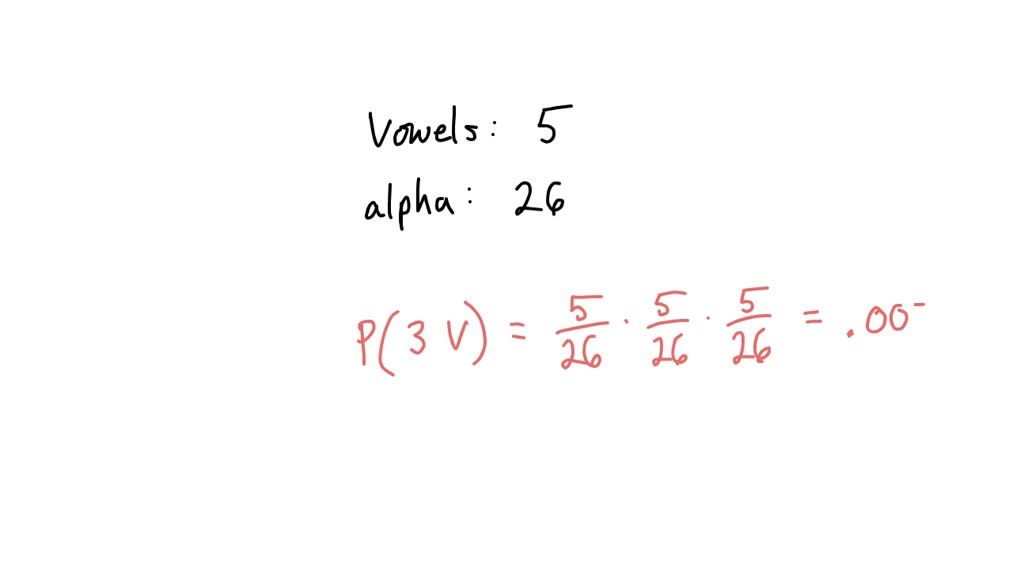 Vowels: 5
alpha: 26
P(3 V) = 5/26 · 5/26 · 5/26 = .00-